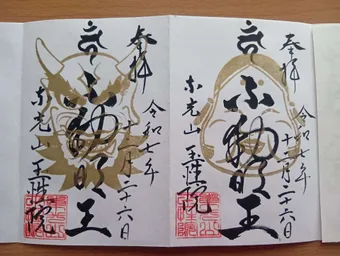 奉拝
令和七年
十二月二十六日
不動明王
東光山 玉性院
奉拝
令和七年
十二月二十六日
不動明王
東光山 玉性院